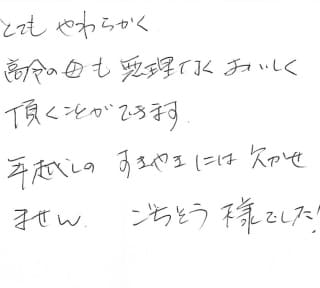 とても やわらかく
高令の母も 無理なく おいしく
頂くことができます.
年越しの すきやきには 欠かせ
ません. ごちそう様でした!